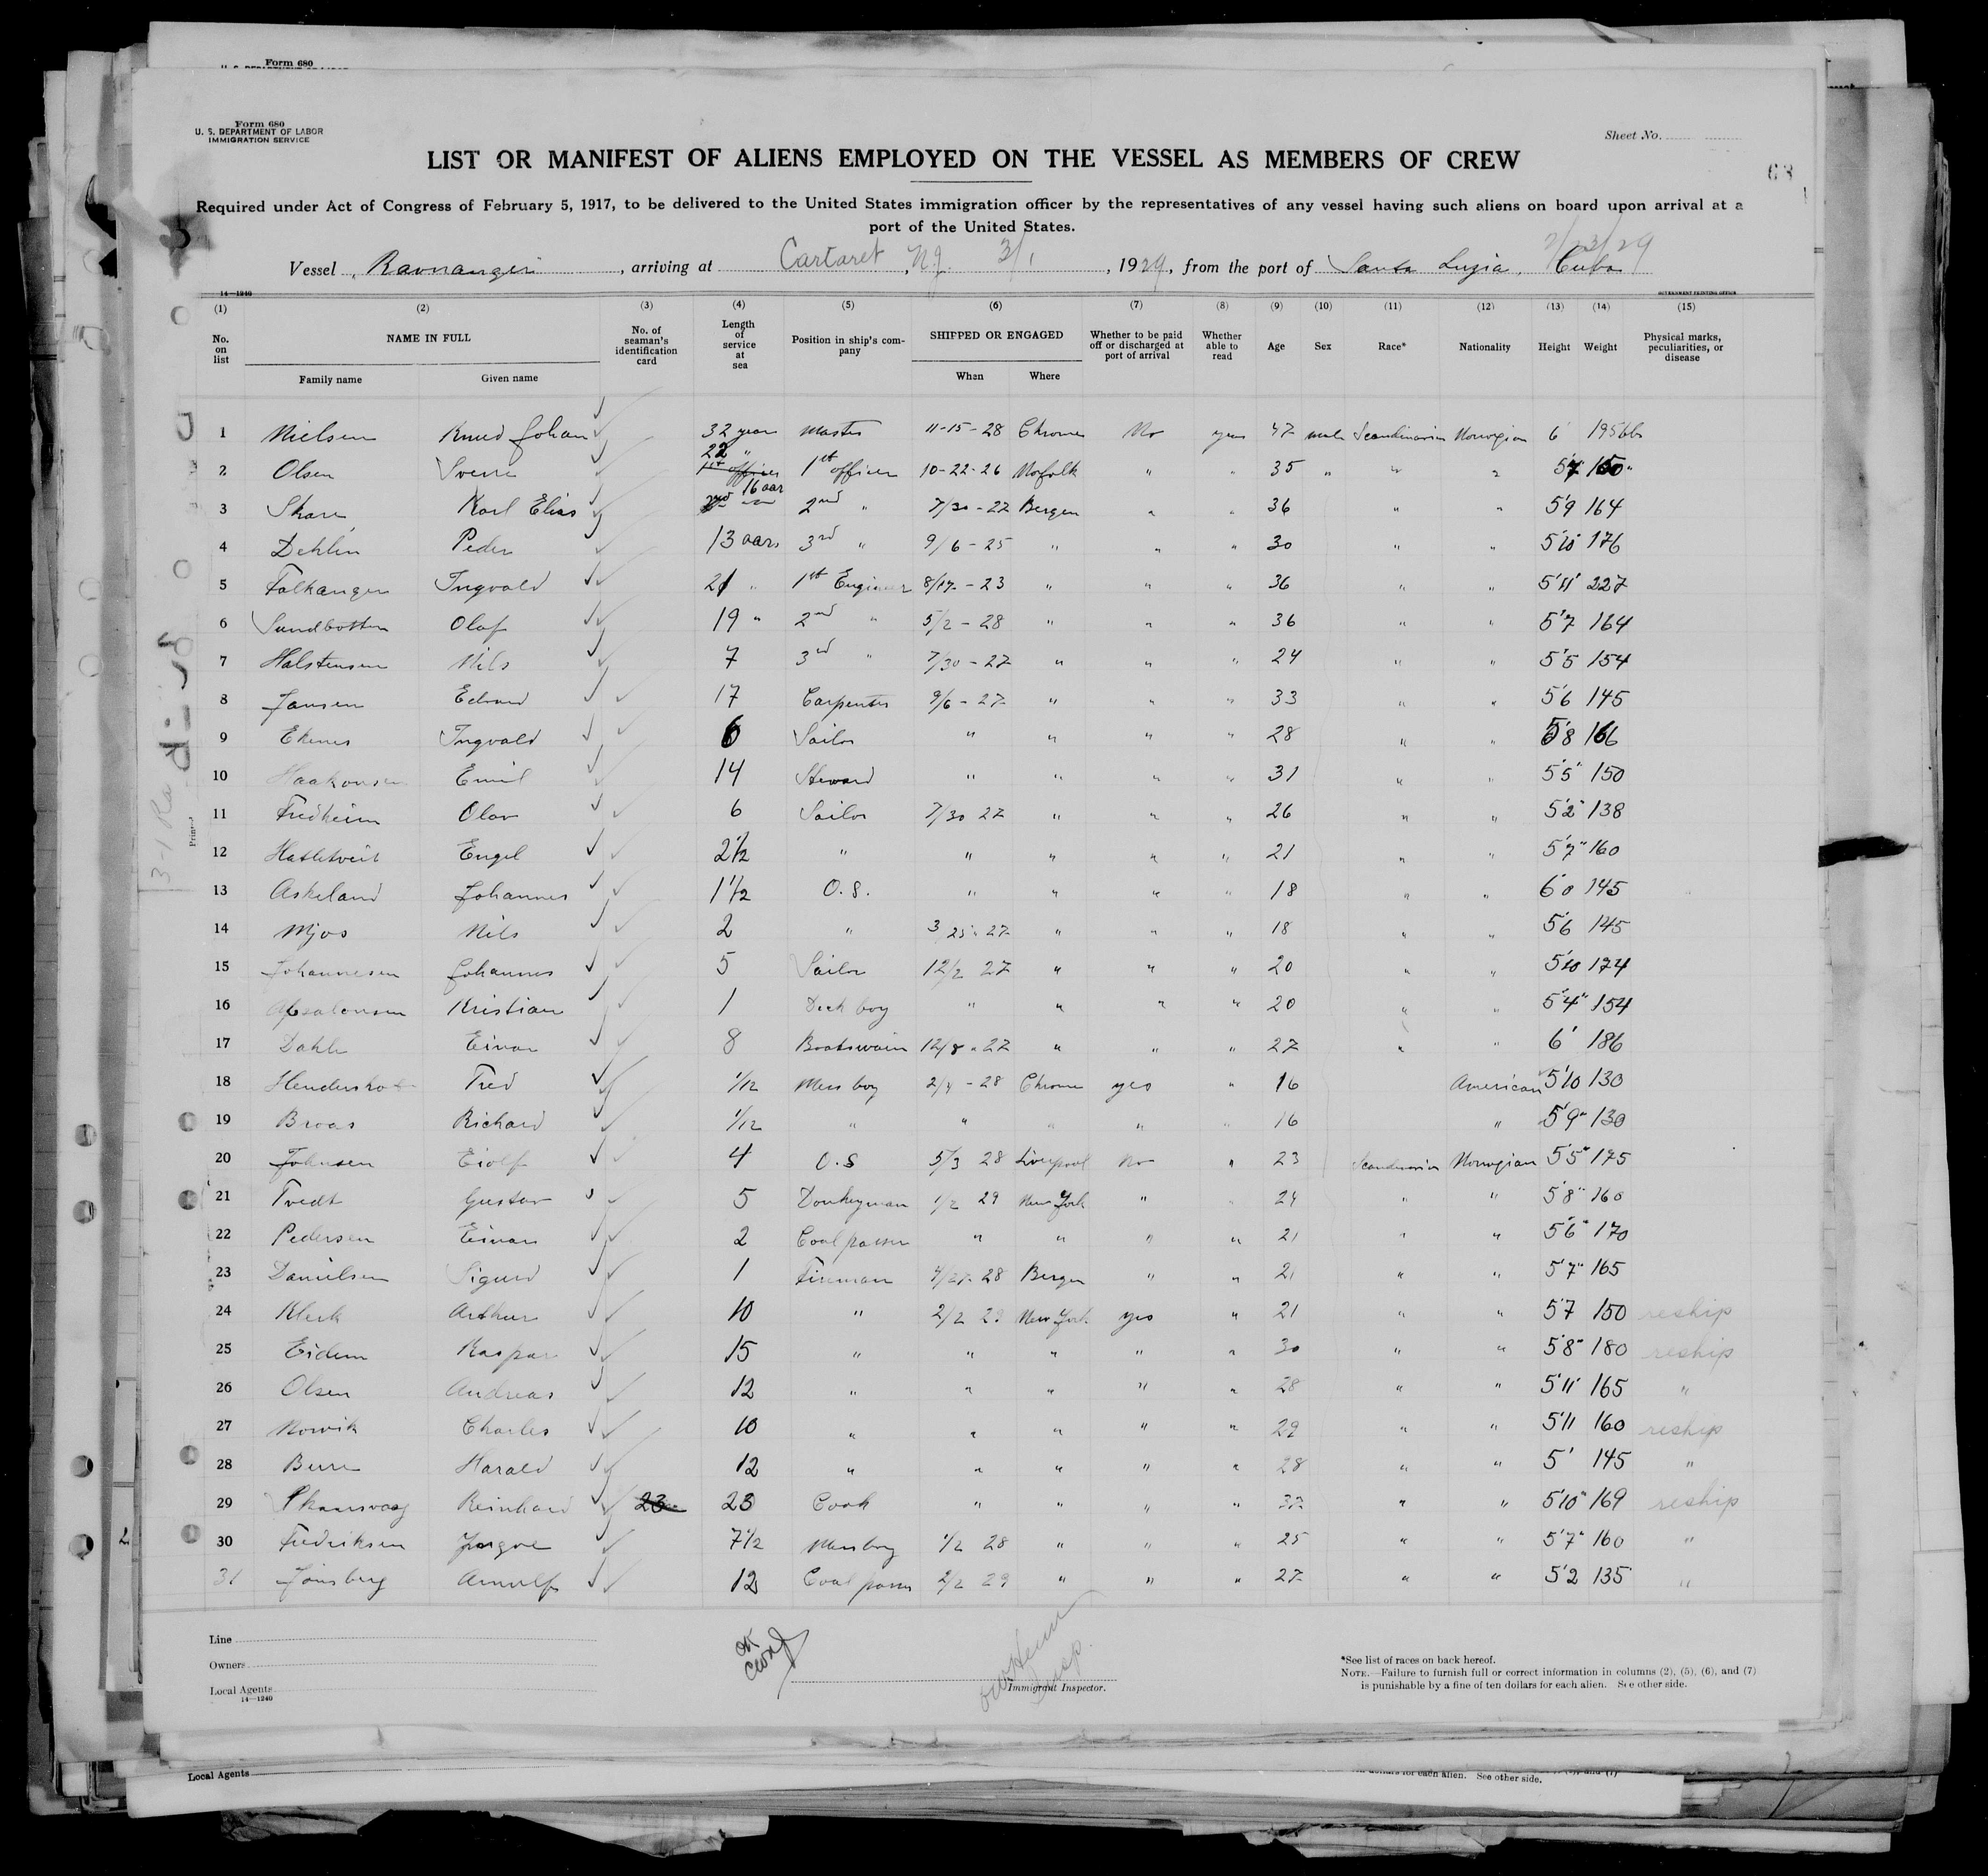 Form 680
Form 680
U. S. DEPARTMENT OF LABOR
IMMIGRATION SERVICE
Sheet No.
LIST OR MANIFEST OF ALIENS EMPLOYED ON THE VESSEL AS MEMBERS OF CREW
63
Required under Act of Congress of February 5, 1917, to be delivered to the United States immigration officer by the representatives of any vessel having such aliens on board upon arrival at a
port of the United States.
2/23/29
Vessel Ravnanger, arriving at Cartaret, N.J. 3/1, 1929, from the port of Santa Luzia, Cuba
14—1240 GOVERNMENT PRINTING OFFICE
(1) (2) (3) (4) (5) (6) (7) (8) (9) (10) (11) (12) (13) (14) (15)
No. on list NAME IN FULL No. of seaman's identification card Length of service at sea Position in ship's company SHIPPED OR ENGAGED Whether to be paid off or discharged at port of arrival Whether able to read Age Sex Race* Nationality Height Weight Physical marks, peculiarities, or disease
Family name Given name When Where
1 Nielsen Knud Johan 32 year Master 11-15-28 Chrome No yes 47 male Scandinavian Norwegian 6' 195 lbs
2 Olsen Sverre 22 " 1st officer 10-22-26 Norfolk " " 35 " " " 5'7" 150 "
3 Skare Karl Elias 16 aar 2nd " 7/30-27 Bergen " " 36 " " 5'9 164
4 Dehlin Peder 13 aars 3rd " 9/6-25 " " " 30 " " 5'10" 176
5 Falkanger Ingvald 21 " 1st Engineer 8/17-23 " " " 36 " " 5'11" 227
6 Sundbotten Olaf 19 " 2nd " 5/2-28 " " " 36 " " 5'7 164
7 Halstensen Nils 7 3rd " 7/30-27 " " " 24 " " 5'5 154
8 Jansen Edvard 17 Carpenter 9/6-27 " " " 33 " " 5'6 145
9 Ekenes Ingvald 6 Sailor " " " " 28 " " 5'8 166
10 Haakonsen Emil 14 Steward " " " " 31 " " 5'5" 150
11 Fredheim Olav 6 Sailor 7/30 27 " " " 26 " " 5'2" 138
12 Engel 2 1/2 " " " " " 21 " " 5'7" 160
13 Askeland Johannes 1 1/2 O.S. " " " " 18 " " 6'0 145
14 Mjos Nils 2 " 3/25-27 " " " 18 " " 5'6 145
15 Johannesen Johannes 5 Sailor 12/2 27 " " " 20 " " 5'10 174
16 Apsalonsen Kristian 1 Deck boy " " " " 20 " " 5'4" 154
17 Dahle Einar 8 Boatswain 12/8-27 " " " 27 " " 6' 186
18 Hendershot Fred 1/12 Mess boy 2/4-28 Chrome yes " 16 American 5'10 130
19 Broas Richard 1/12 " " " " " 16 " 5'9" 130
20 Johnsen Eiolf 4 O.S 5/3 28 Liverpool No " 23 Scandinavian Norwegian 5'5" 175
21 Tvedt Gustav 5 Donkeyman 1/2 29 New York " " 24 " " 5'8" 160
22 Pedersen Einar 2 Coal passer " " " " 21 " " 5'6" 170
23 Danielsen Sigurd 1 Fireman 4/27-28 Bergen " " 21 " " 5'7" 165
24 Klerk Arthur 10 " 2/2 29 New York yes " 21 " " 5'7 150 reship
25 Eidem Kaspar 15 " " " " " 30 " " 5'8" 180 reship
26 Olsen Andreas 12 " " " " " 28 " " 5'11" 165 "
27 Norvik Charles 10 " " " " " 29 " " 5'11 160 reship
28 Harald 12 " " " " " 28 " " 5' 145 "
29 Reinhard 23 23 Cook " " " " 37 " " 5'10" 169 reship
30 Fredriksen Yngve 7 1/2 Messboy 1/2 28 " " " 25 " " 5'7" 160 "
31 Arnulf 12 Coal passer 2/2 29 " " " 27 " " 5'2 135 "
Line
Owners
Local Agents
14—1240
OK
Insp.
Immigrant Inspector.
*See list of races on back hereof.
NOTE.—Failure to furnish full or correct information in columns (2), (5), (6), and (7)
is punishable by a fine of ten dollars for each alien. See other side.
Local Agents
for each alien. See other side.